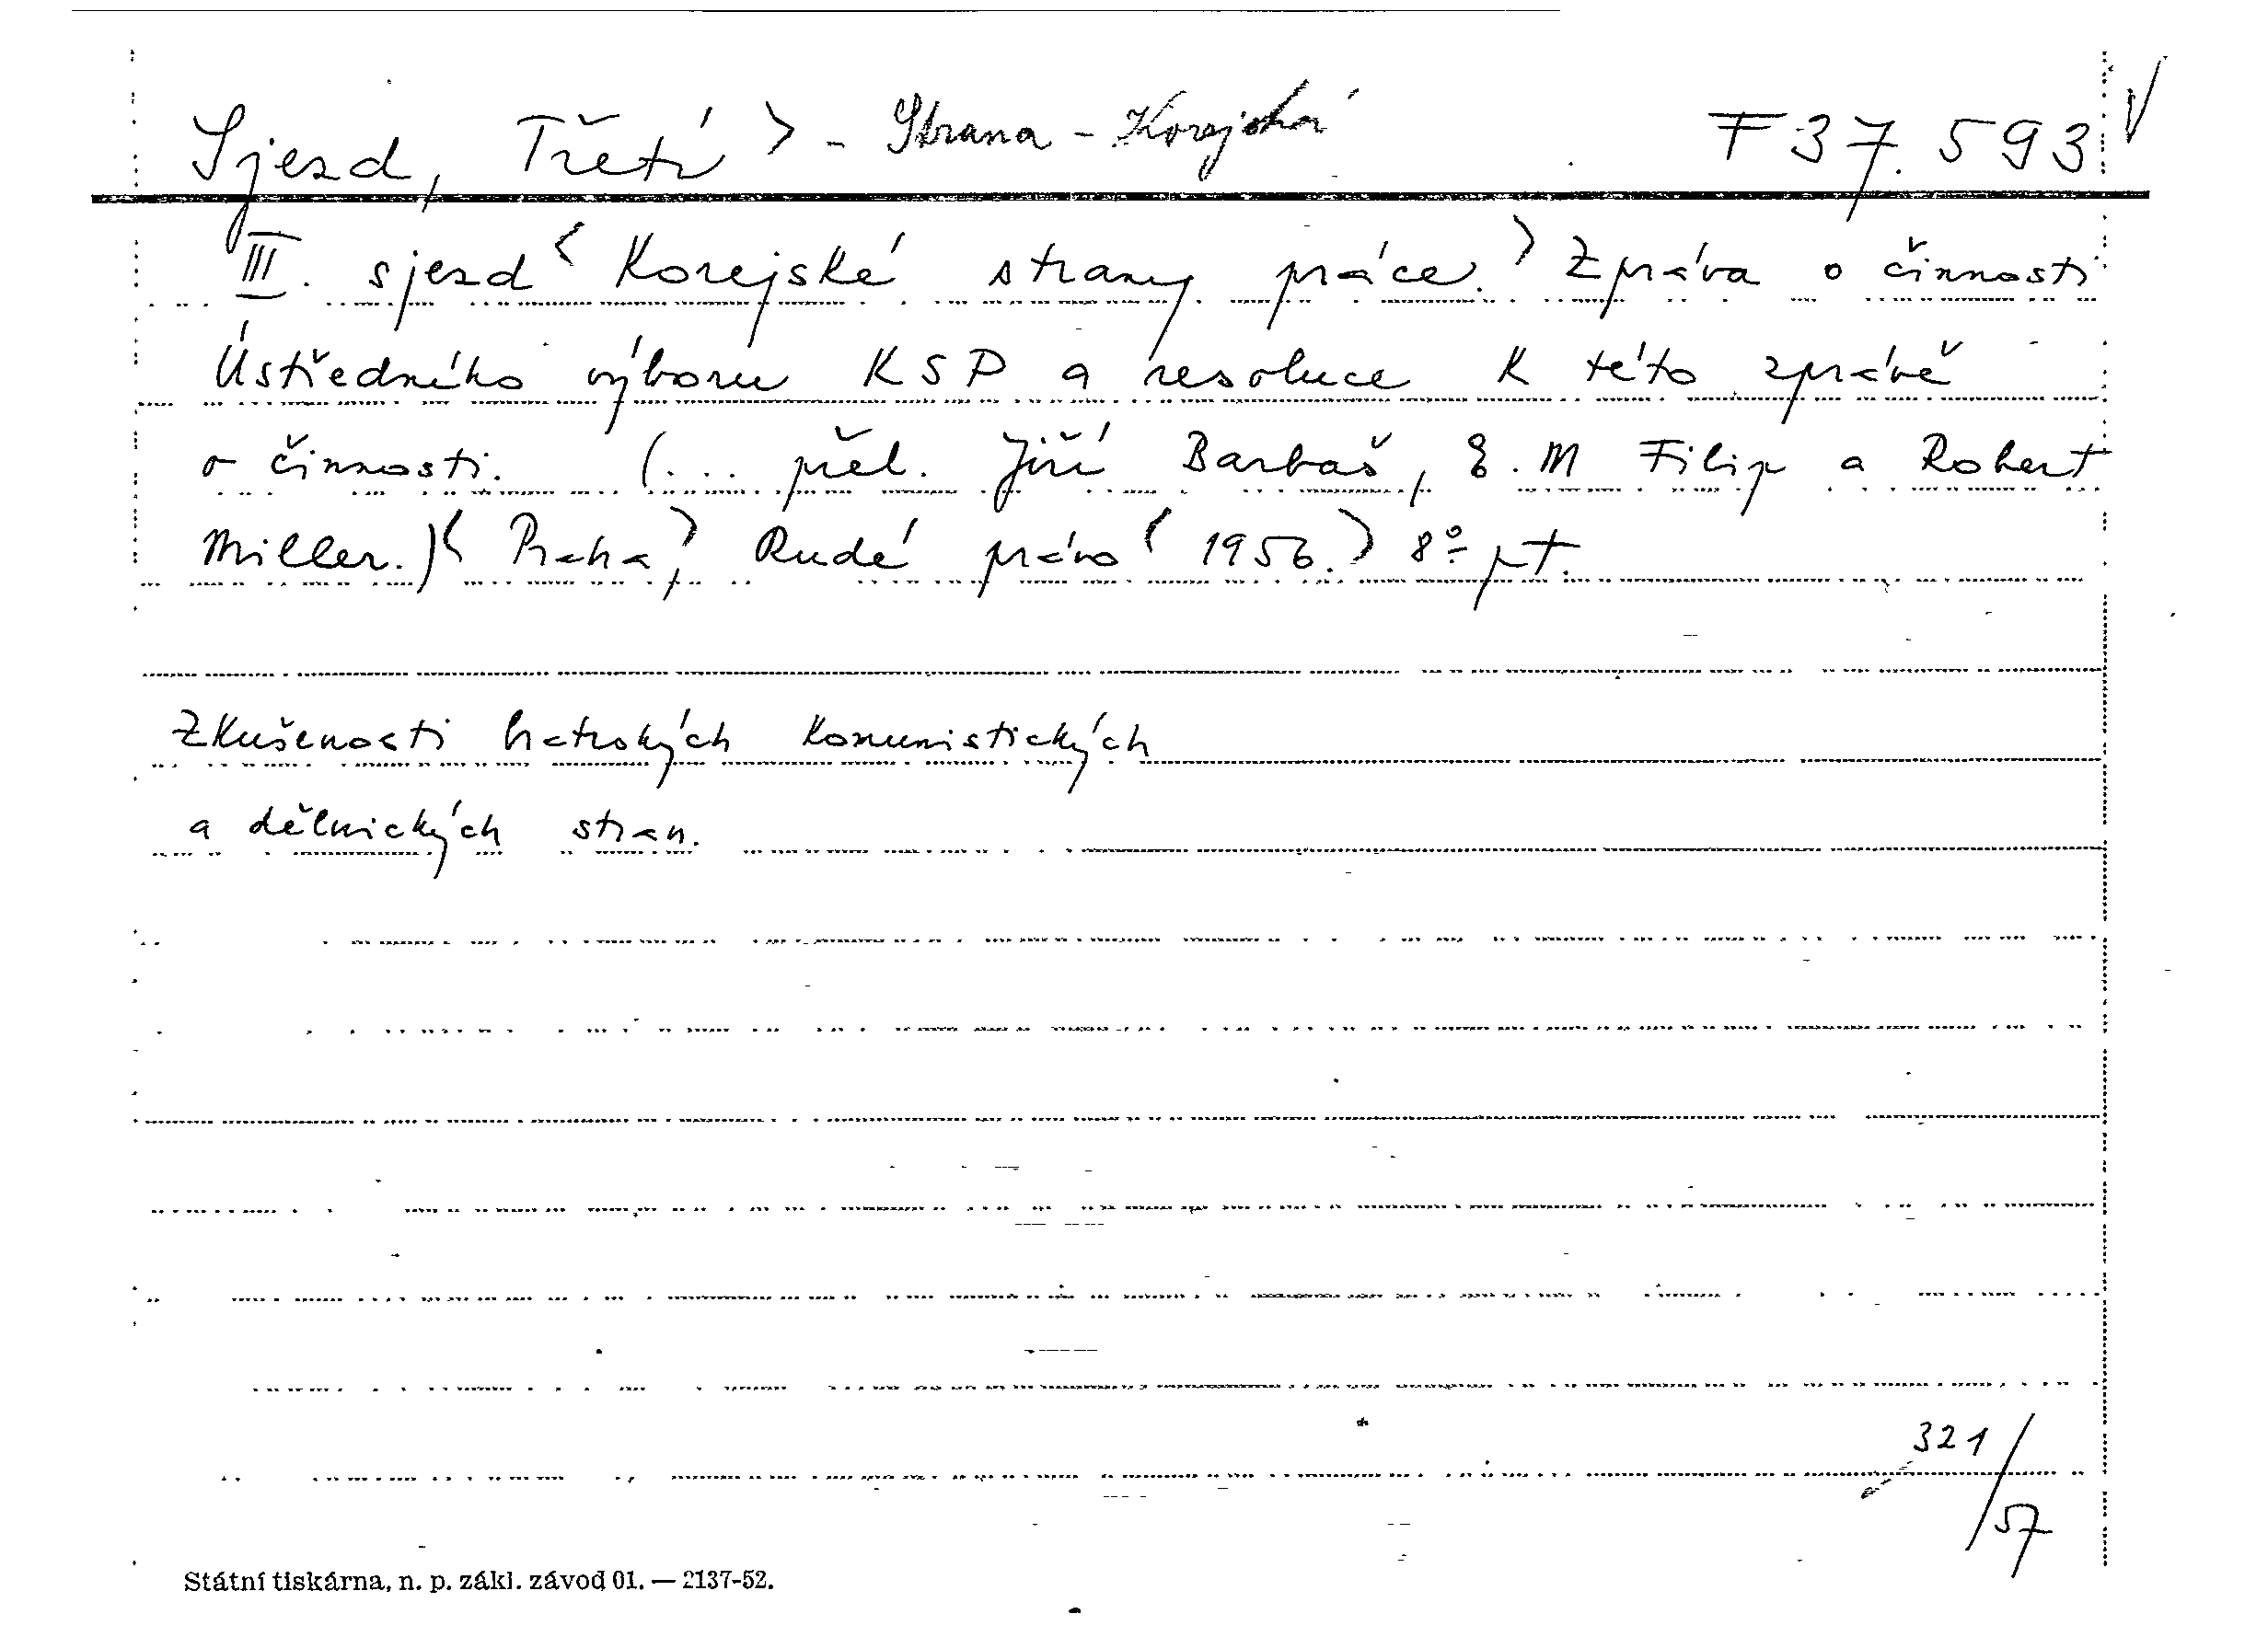 Sjezd, Třetí > - Strana - Korejská F 37.593 V
III. sjezd < Korejské strany práce. > Zpráva o činnosti
Ústředního výboru KSP a resoluce k této zprávě
o činnosti. (... přel. Jiří Barbaš, E. M Filip a Robert
Miller.) < Praha, > Rudé právo < 1956. > 8° pt.
Zkušenosti bratrských komunistických
a dělnických stran.
321/57
Státní tiskárna, n. p. zákl. závod 01. — 2137-52.